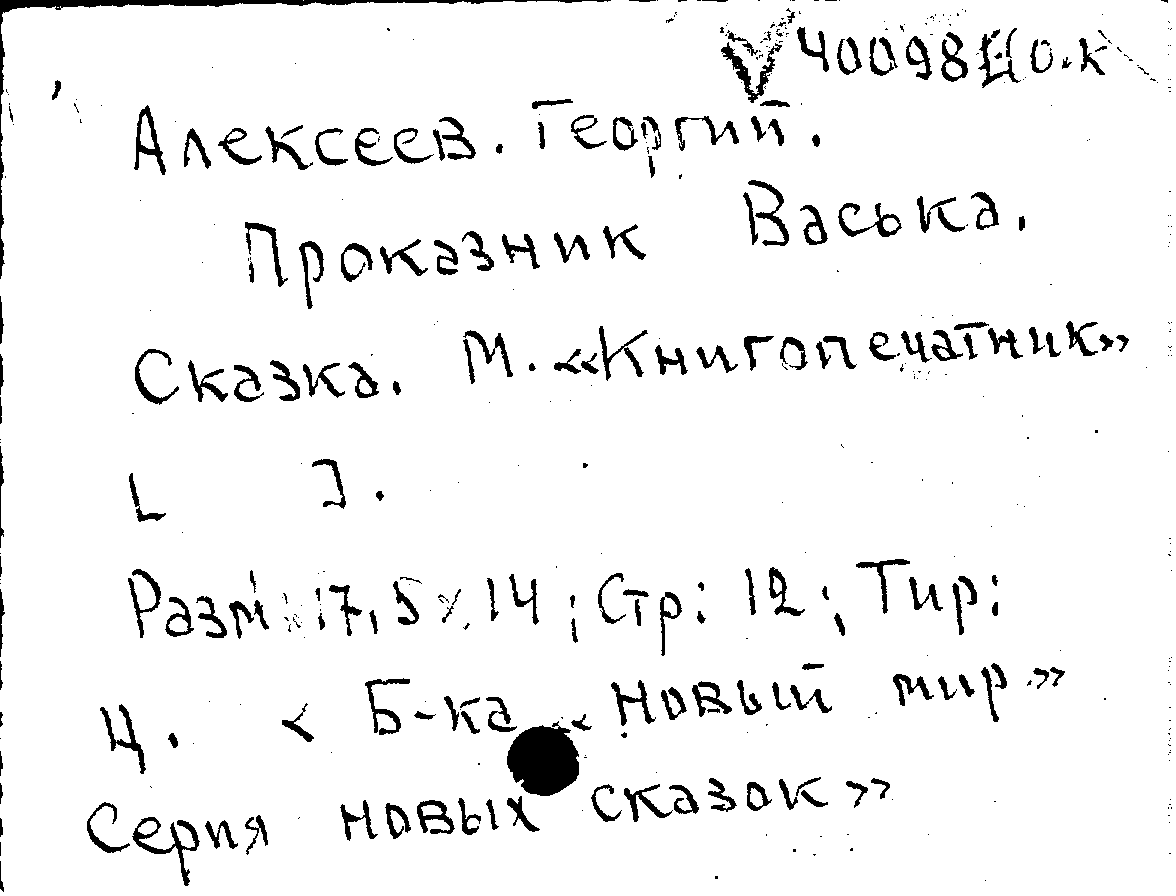 40098 о.к
Алексеев. Георгий.
Проказник Васька.
Сказка. М. «Книгопечатник»
[ ].
Разм 17,5 x 14 ; Стр: 12 ; Тир:
Ц. < Б-ка « Новый мир »
Серия новых сказок »